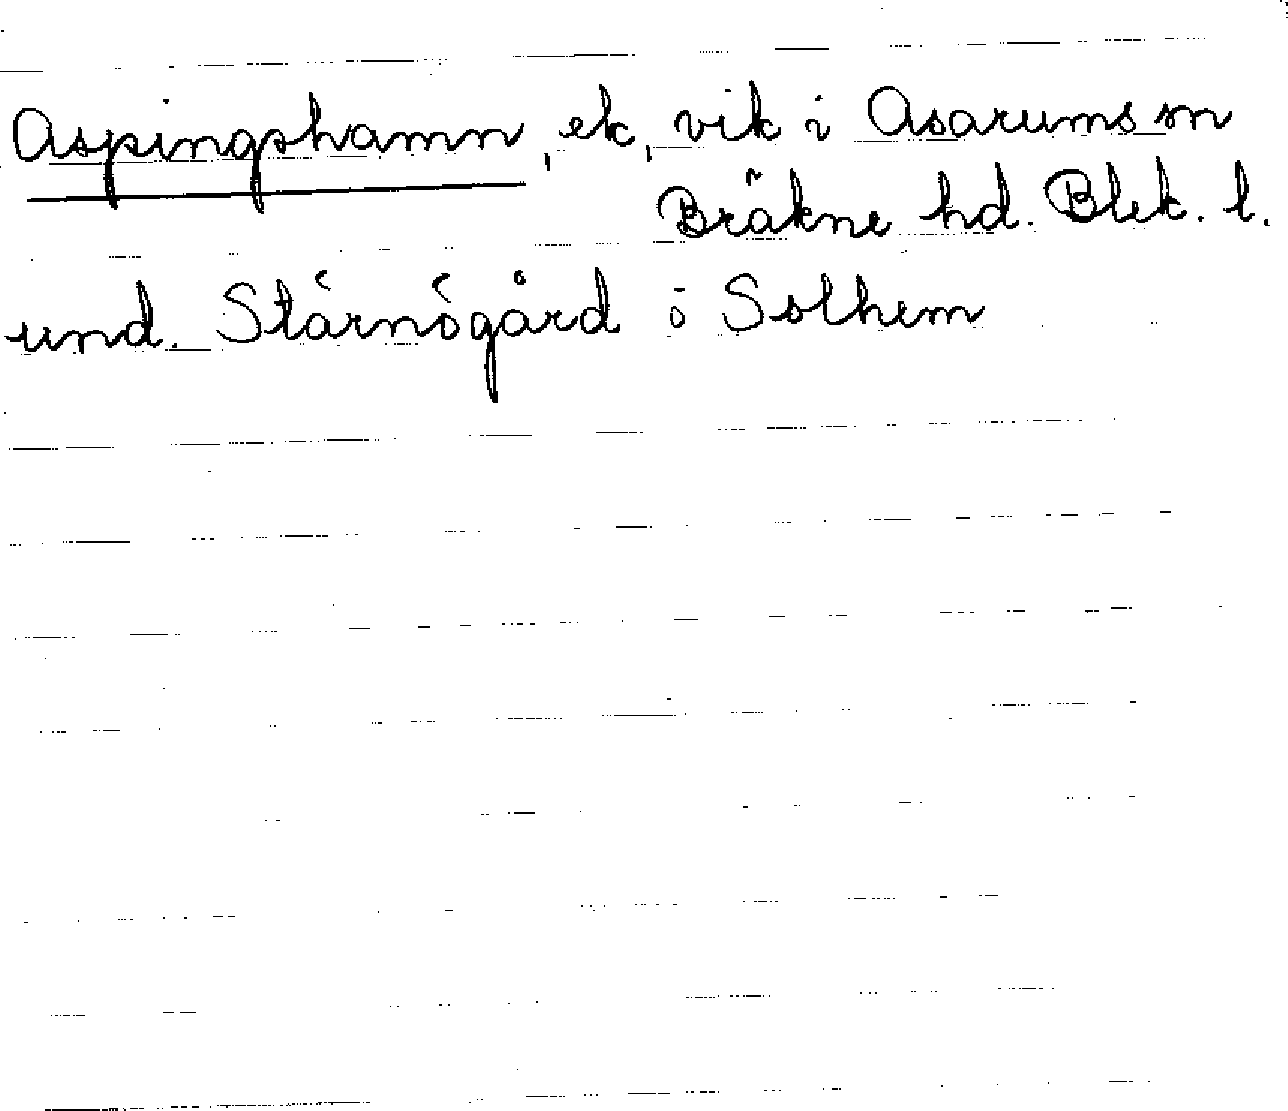 Aspingshamn, ek, vik i Asarums sn
Bräkne hd. Blek. l.
und. Stärnögård ö Solhem